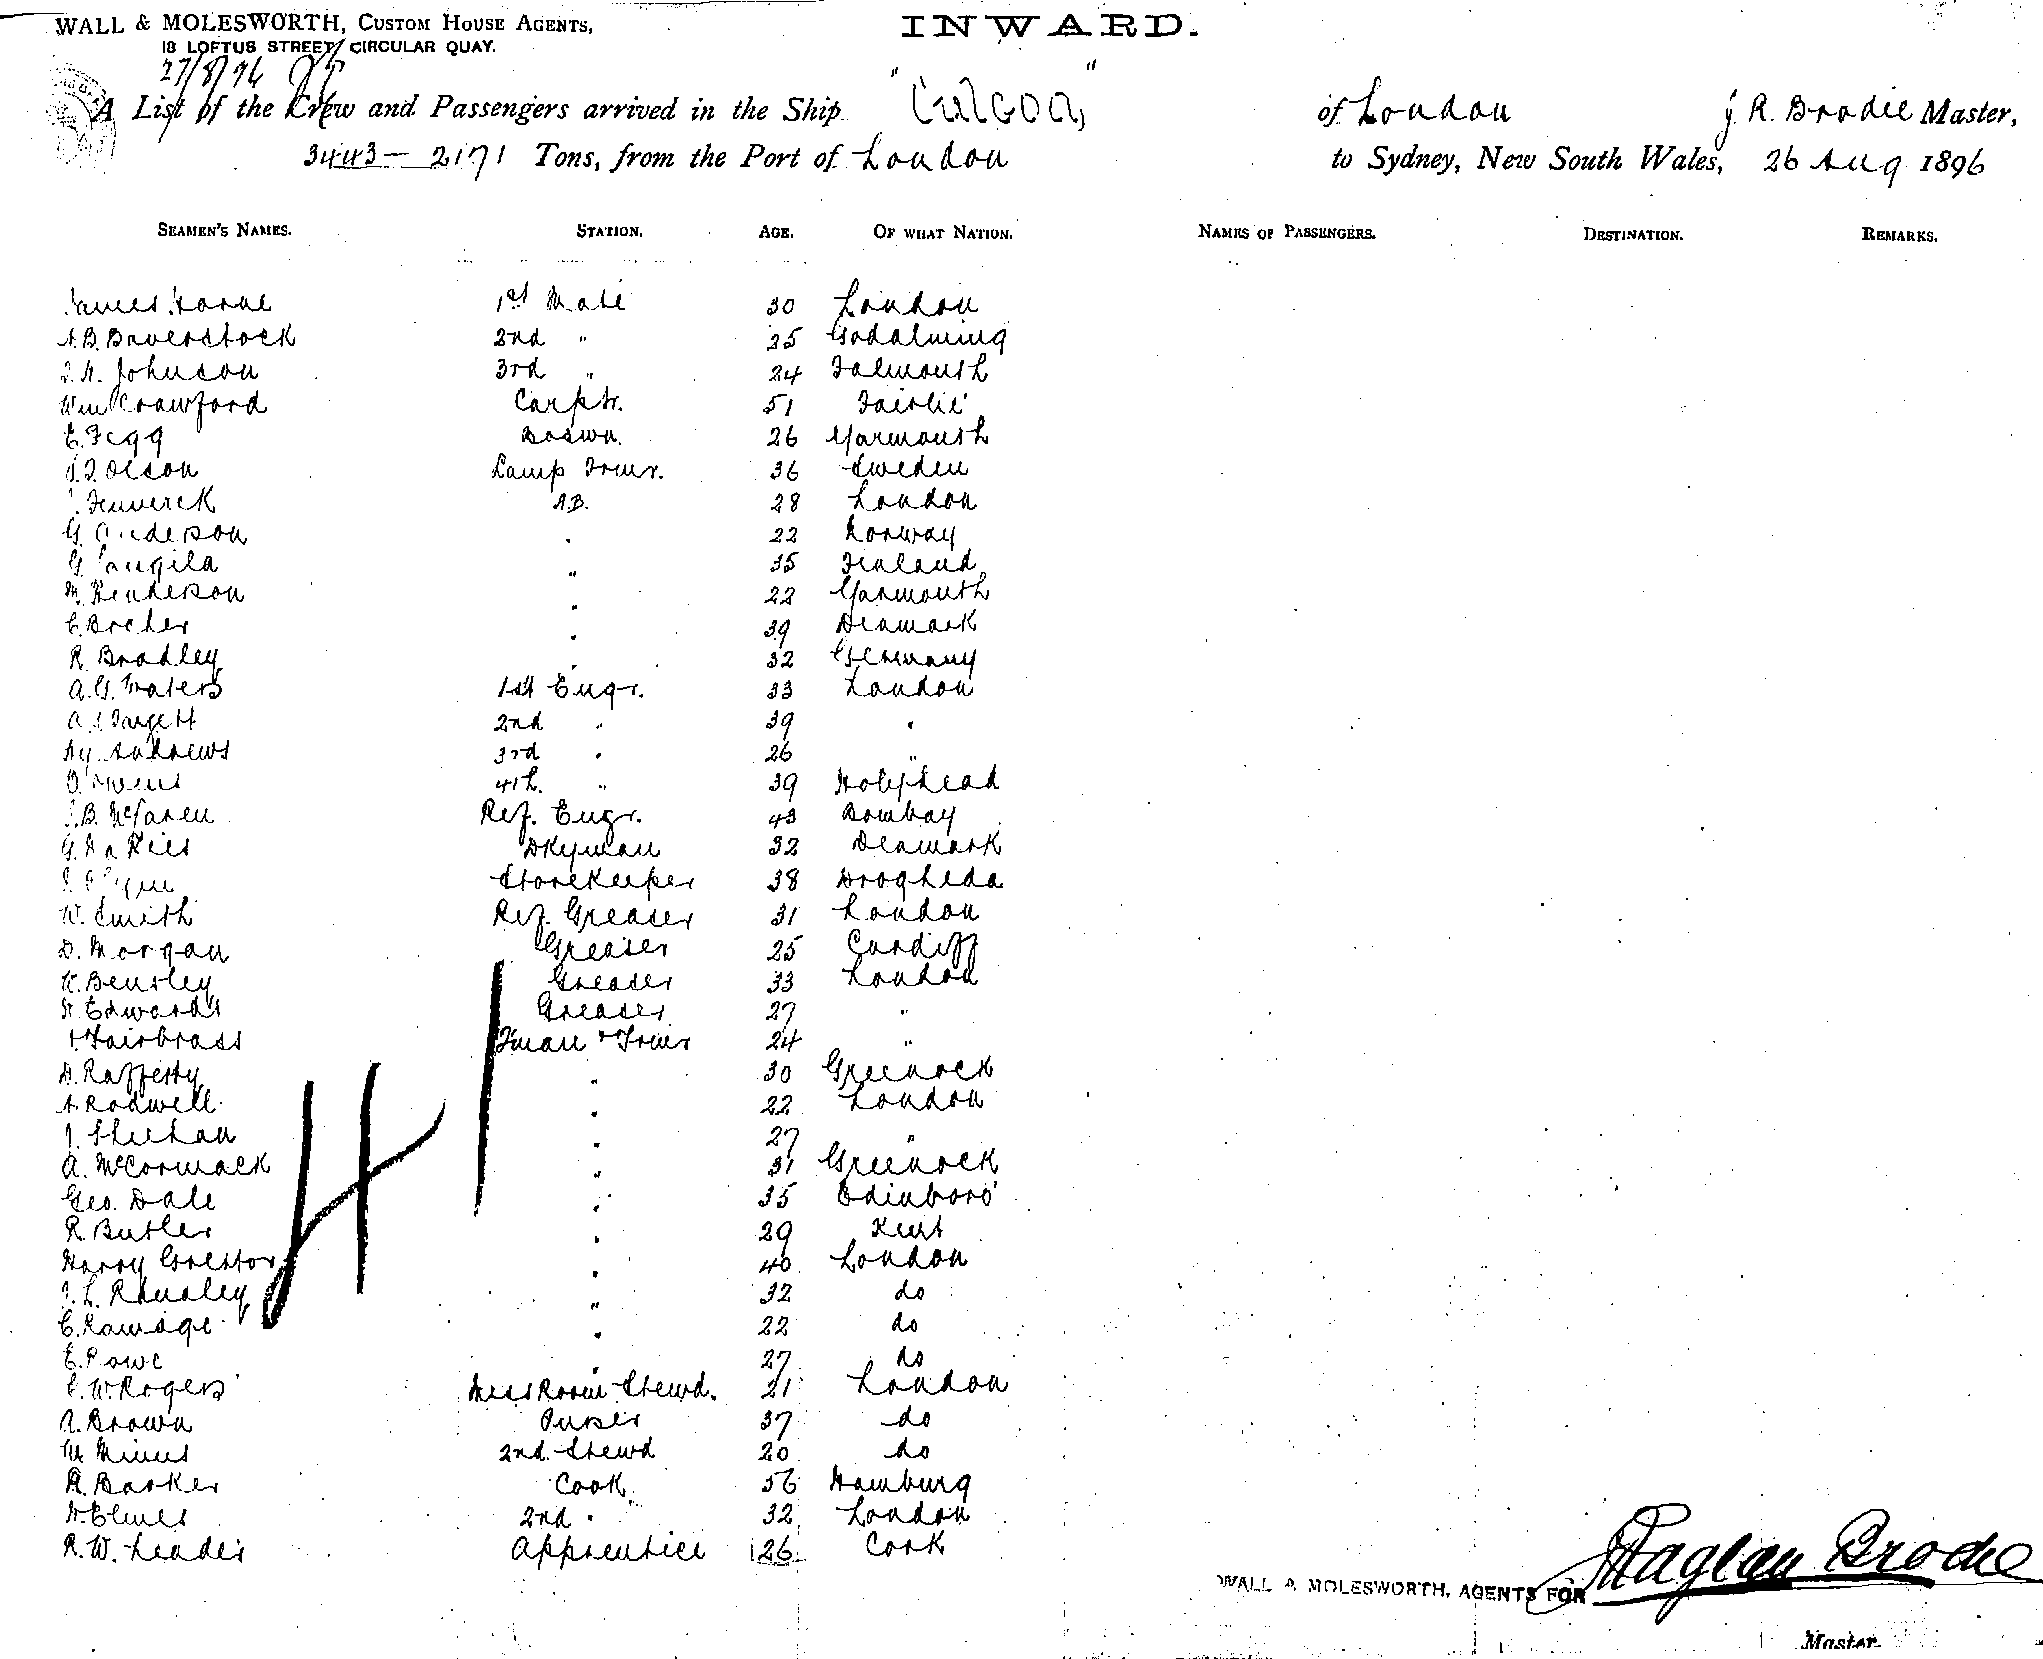 WALL & MOLESWORTH, CUSTOM HOUSE AGENTS,
18 LOFTUS STREET, CIRCULAR QUAY.
INWARD.
27/8/96
A List of the Crew and Passengers arrived in the Ship "Culgoa" of London J. R. Brodie Master,
3443 - 2171 Tons, from the Port of London to Sydney, New South Wales, 26 Aug 1896
SEAMEN'S NAMES. STATION. AGE. OF WHAT NATION. NAMES OF PASSENGERS. DESTINATION. REMARKS.
James Horne 1st Mate 30 London
A.B. Baverstock 2nd " 25 Godalming
Johnson 3rd " 24 Falmouth
Wm Crawford Carptr. 51 Fairlie
E. Fegg Boswn. 26 Yarmouth
Olson Lamp Trmr. 36 Sweden
Fenwick A.B. 28 London
G. Anderson " 22 Norway
G. " 35 Finland
M. Henderson " 22 Yarmouth
C. " 39 Denmark
R. Bradley " 32 Germany
A.G. Waters 1st Engr. 33 London
A. Targett 2nd " 39 "
Hy. Andrews 3rd " 26 "
Owens 4th. " 39 Holyhead
B. McLaren Ref. Engr. 43 Bombay
G. Dkyman 32 Denmark
Storekeeper 38 Drogheda
W. Smith Ref. Greaser 31 London
D. Morgan Greaser 25 Cardiff
Bensley Greaser 33 London
H. Edwards Greaser 27 "
Fairbrass Fman & Trmr 24 "
D. Rafferty " 30 Greenock
A. Rodwell " 22 London
J. Sheehan " 27 "
A. McCormack " 31 Greenock
Geo. Dale " 35 Edinboro'
R. Butler " 29 Kent
Harry " 40 London
L. " 32 do
C. " 22 do
E. Rowe " 27 do
C. W. Rogers Mess Room Stewd. 21 London
A. Brown Purser 37 do
2nd Stewd 20 do
R. Barker Cook. 56 Hamburg
H. Elmes 2nd " 32 London
R. W. Leader Apprentice 26 Cork
WALL & MOLESWORTH, AGENTS FOR Raglan Brodie
Master